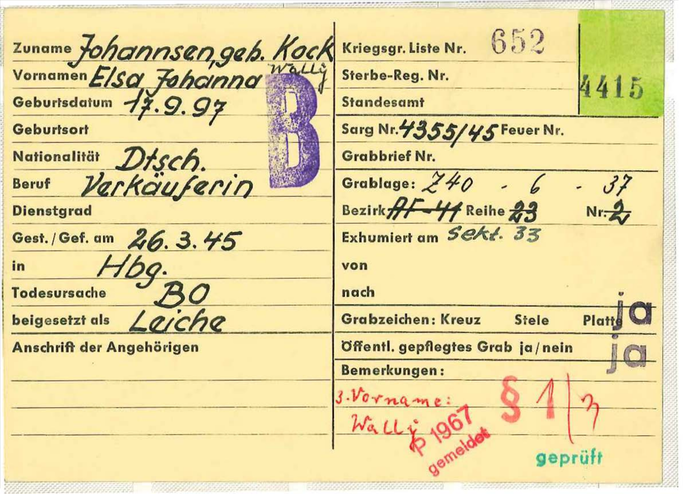 Zuname Johannsen, geb. Kock
Vornamen Elsa Johanna Wally
Geburtsdatum 17.9.97
Geburtsort
Nationalität Dtsch.
Beruf Verkäuferin
Dienstgrad
Gest./Gef. am 26.3.45
in Hbg.
Todesursache BO
beigesetzt als Leiche
Anschrift der Angehörigen
B
Kriegsgr. Liste Nr. 652
4415
Sterbe-Reg. Nr.
Standesamt
Sarg Nr. 4355/45 Feuer Nr.
Grabbrief Nr.
Grablage: Z40 - 6 - 37
Bezirk AF-41 Reihe 23 Nr: 2
Exhumiert am Sekt. 33
von
nach
Grabzeichen: Kreuz Stele Platte ja
Öffentl. gepflegtes Grab ja/nein ja
Bemerkungen:
3. Vorname: § 1/3
Wally
P 1967
gemeldet
geprüft